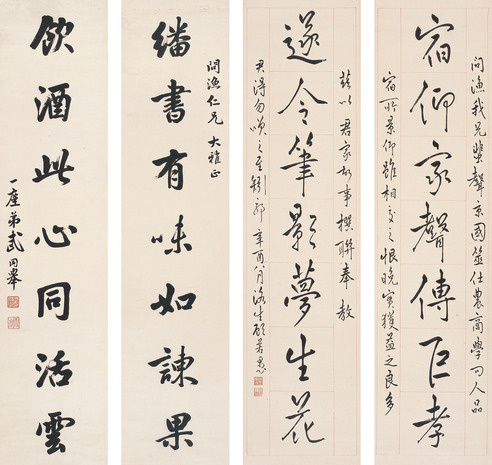 问漁我兄蜚聲京國筮仕農商學问人品
宿仰家聲傳巨孝
宿所景仰雖相交之恨晚實獲益之良多
兹以君家故事撰聯奉教
遂令筆影夢生花
君得勿嗔之至 辛酉八月洛生顧若愚
問漁仁兄大雅正
繙書有味如諫果
飲酒此心同活雲
一廑弟武同舉